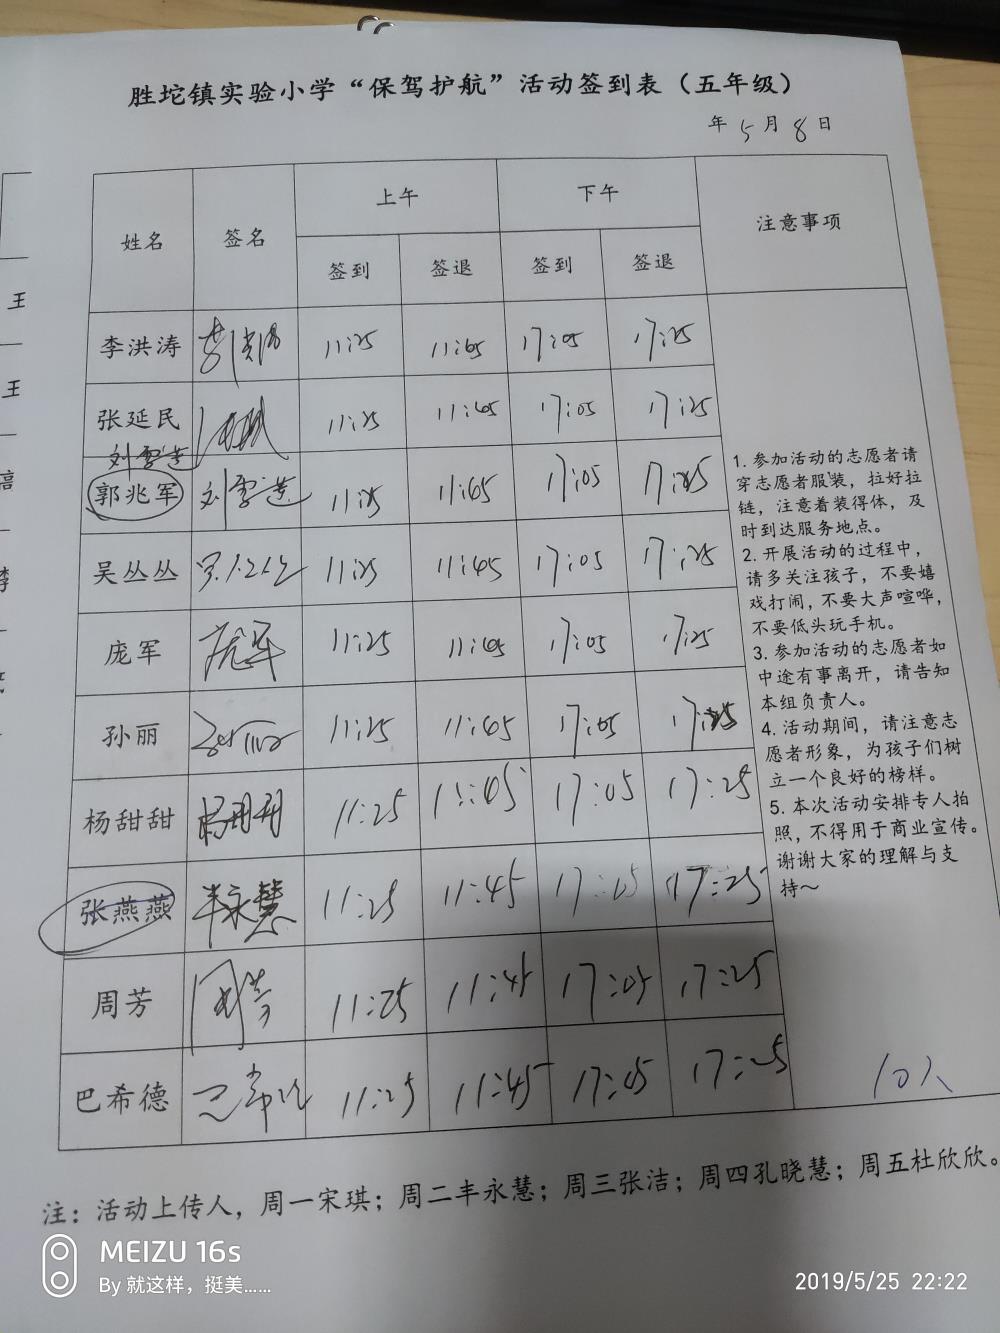 胜坨镇实验小学“保驾护航”活动签到表（五年级）
年 5 月 8 日
姓名 签名 上午 下午 注意事项
签到 签退 签到 签退
李洪涛 李洪涛 11:25 11:45 17:05 17:25
张延民 11:25 11:45 17:05 17:25
刘雪莲
郭兆军 刘雪莲 11:25 11:45 17:05 17:25
吴丛丛 11:25 11:45 17:05 17:25
庞军 庞军 11:25 11:45 17:05 17:25
孙丽 11:25 11:45 17:05 17:25
杨甜甜 杨甜甜 11:25 11:45 17:05 17:25
张燕燕 丰永慧 11:25 11:45 17:05 17:25
周芳 周芳 11:25 11:45 17:05 17:25
巴希德 巴希德 11:25 11:45 17:05 17:25
1. 参加活动的志愿者请
穿志愿者服装，拉好拉
链，注意着装得体，及
时到达服务地点。
2. 开展活动的过程中，
请多关注孩子，不要嬉
戏打闹，不要大声喧哗，
不要低头玩手机。
3. 参加活动的志愿者如
中途有事离开，请告知
本组负责人。
4. 活动期间，请注意志
愿者形象，为孩子们树
立一个良好的榜样。
5. 本次活动安排专人拍
照，不得用于商业宣传。
谢谢大家的理解与支
持～
10人
注：活动上传人，周一宋琪；周二丰永慧；周三张洁；周四孔晓慧；周五杜欣欣。
MEIZU 16s
By 就这样，挺美……
2019/5/25 22:22
王
王